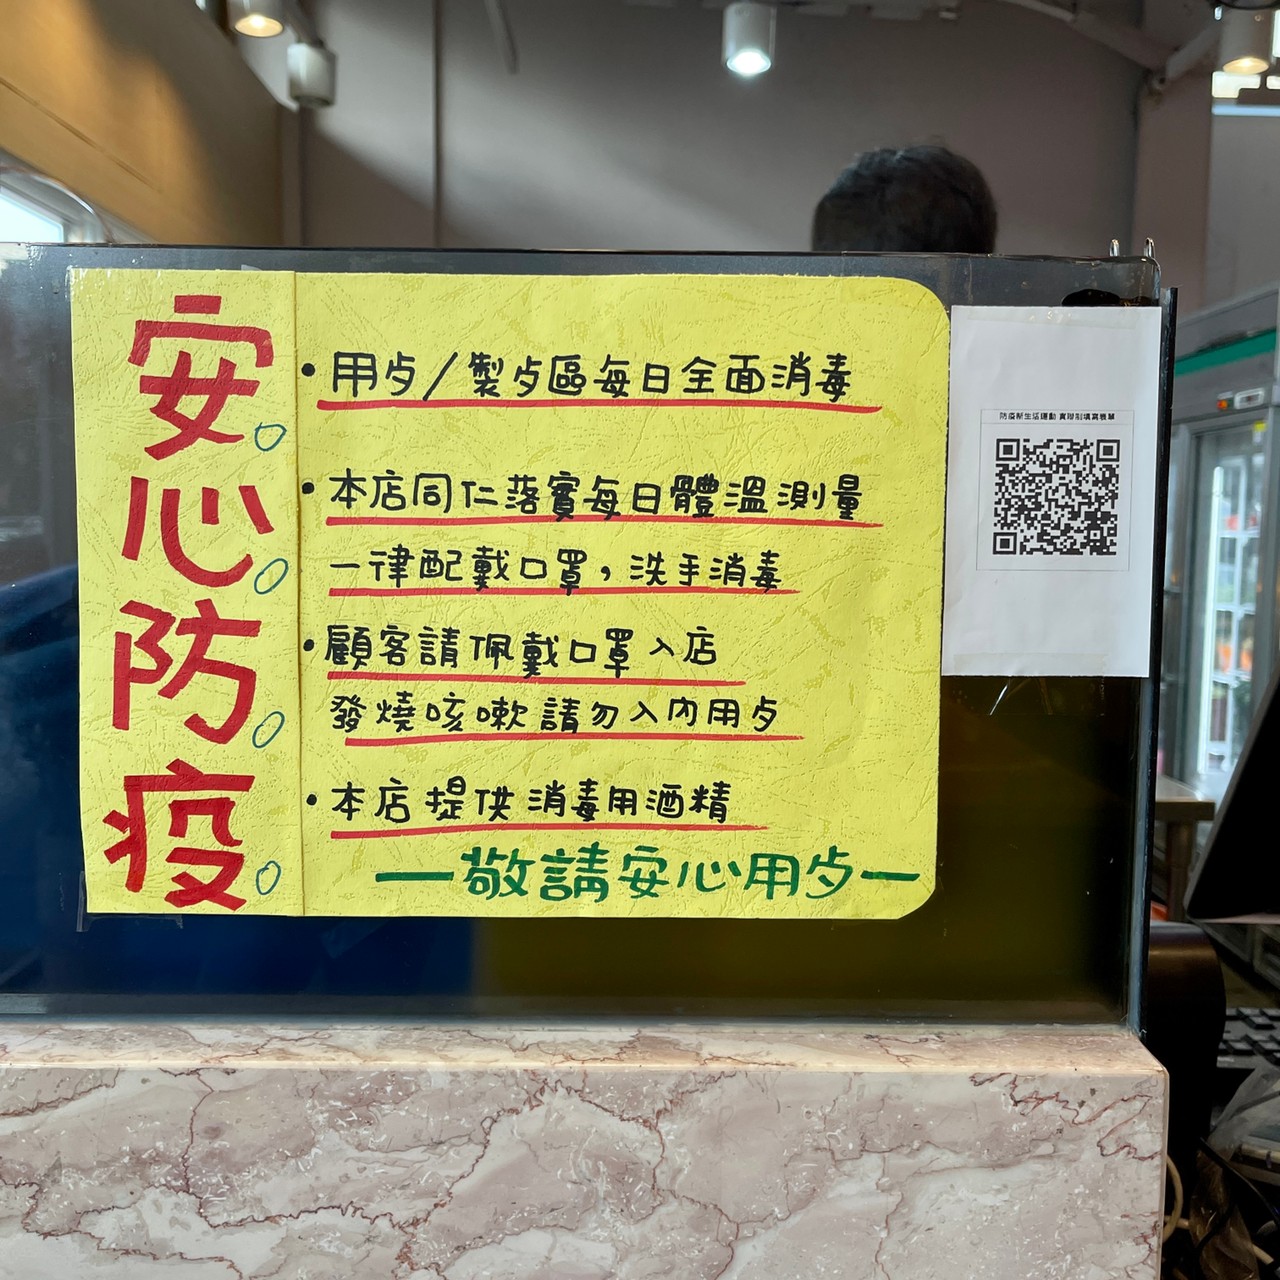 安心防疫
•用歺/製歺區每日全面消毒
•本店同仁落實每日體溫測量
一律配戴口罩，洗手消毒
•顧客請佩戴口罩入店
發燒咳嗽請勿入內用歺
•本店提供消毒用酒精
—敬請安心用歺—
防疫新生活運動 實聯制填寫表單